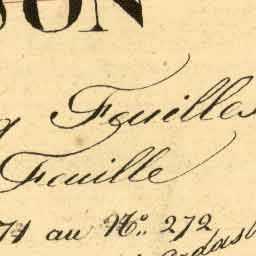 SON
Feuilles
Feuille
71 au N° 272